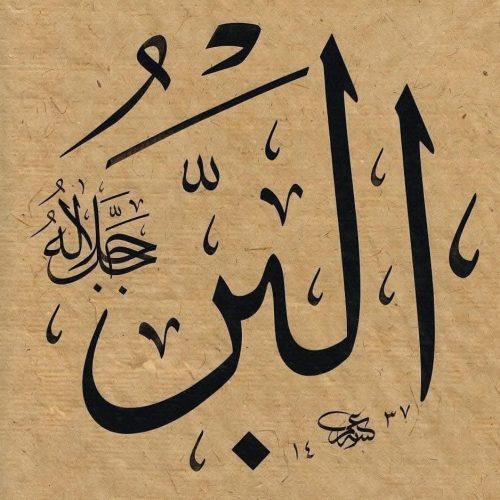 البَرُّ
جَلَّ جَلَالُهُ
١٤ ٣٧